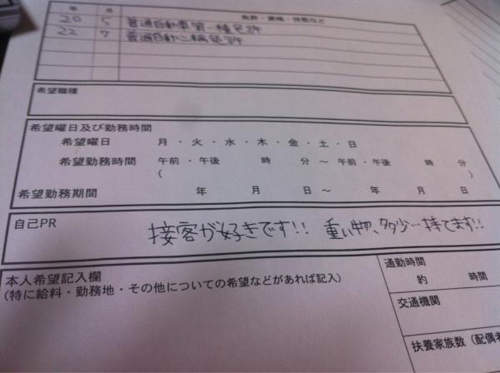 年 月 免許・資格・技能など
20 5 普通自動車第一種免許
22 7 普通自動二輪免許
希望職種
希望曜日及び勤務時間
希望曜日 月・火・水・木・金・土・日
希望勤務時間 午前・午後 時 分〜午前・午後 時 分
(
希望勤務期間 年 月 日〜 年 月 日
自己PR 接客が好きです!! 重い物、多少持てます!!
本人希望記入欄
(特に給料・勤務地・その他についての希望などがあれば記入)
通勤時間
約 時間
交通機関
扶養家族数(配偶者